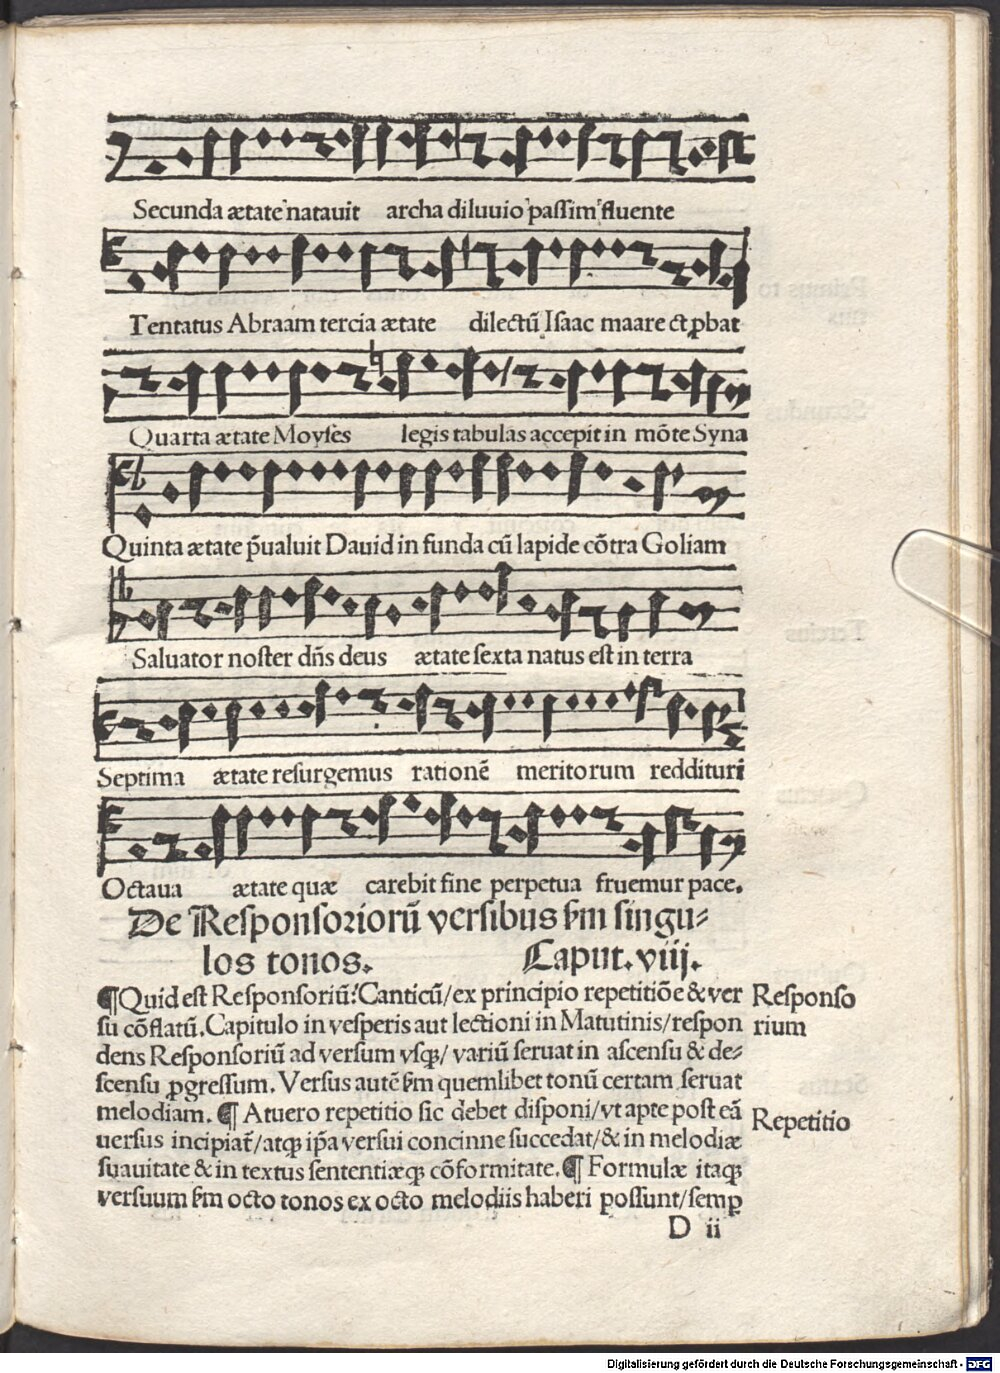 Secunda ætate natauit archa diluuio passim fluente
Tentatus Abraam tercia ætate dilectū Isaac maare et ꝓbat
Quarta ætate Moyses legis tabulas accepit in mōte Syna
Quinta ætate p̄ualuit Dauid in funda cū lapide cōtra Goliam
Saluator noster dn̄s deus ætate sexta natus est in terra
Septima ætate resurgemus rationē meritorum reddituri
Octaua ætate quæ carebit fine perpetua fruemur pace.
De Responsoriorū versibus s̄m singu⸗
los tonos. Caput. viij.
¶Quid est Responsoriū? Canticū/ ex principio repetitiōe & ver
su cōflatū. Capitulo in vesperis aut lectioni in Matutinis/ respon
dens Responsoriū ad versum vsqꝫ/ variū seruat in ascensu & de⸗
scensu ꝓgressum. Versus autē s̄m quemlibet tonū certam seruat
melodiam. ¶ At uero repetitio sic debet disponi/ vt apte post eā
uersus incipiat̄/ atqꝫ ip̄a versui concinne succedat/ & in melodiæ
suauitate & in textus sententiæqꝫ cōformitate. ¶ Formulæ itaqꝫ
versuum s̄m octo tonos ex octo melodiis haberi possunt/ semꝑ
Responso
rium
Repetitio
D ii
Digitalisierung gefördert durch die Deutsche Forschungsgemeinschaft - DFG